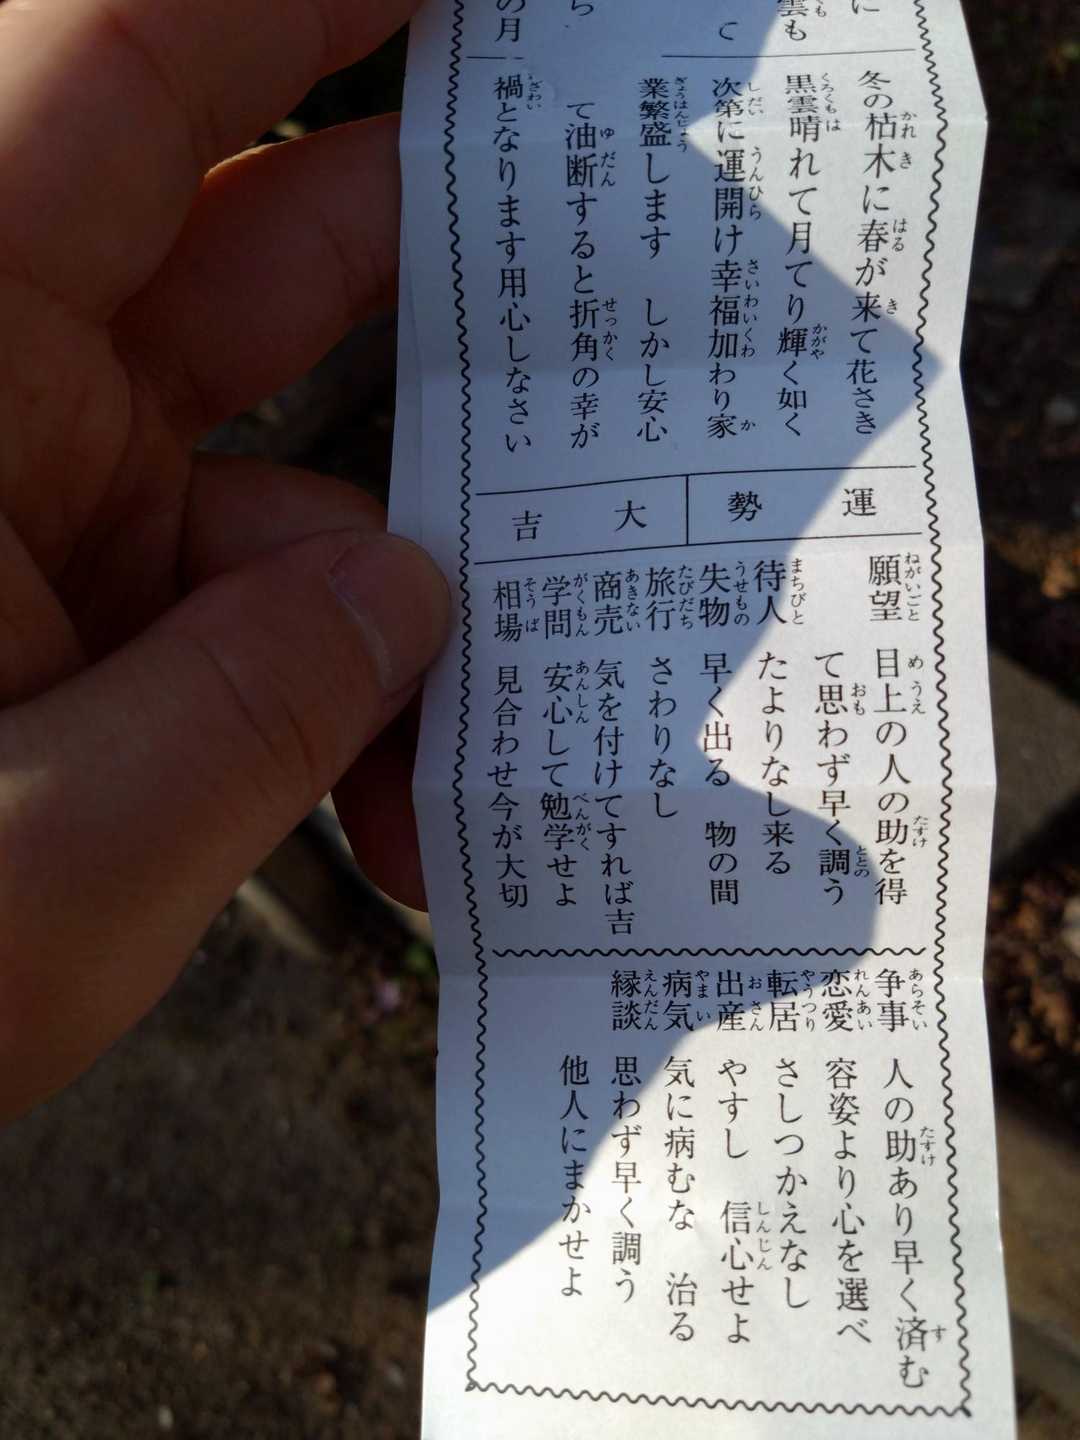 に
雲も
て
ら
の月
冬の枯木に春が来て花さき
黒雲晴れて月てり輝く如く
次第に運開け幸福加わり家
業繁盛します しかし安心
て油断すると折角の幸が
禍となります用心しなさい
運勢 大吉
願望 目上の人の助を得
て思わず早く調う
待人 たよりなし来る
失物 早く出る 物の間
旅行 さわりなし
商売 気を付けてすれば吉
学問 安心して勉学せよ
相場 見合わせ今が大切
争事 人の助あり早く済む
恋愛 容姿より心を選べ
転居 さしつかえなし
出産 やすし 信心せよ
病気 気に病むな 治る
縁談 思わず早く調う
他人にまかせよ